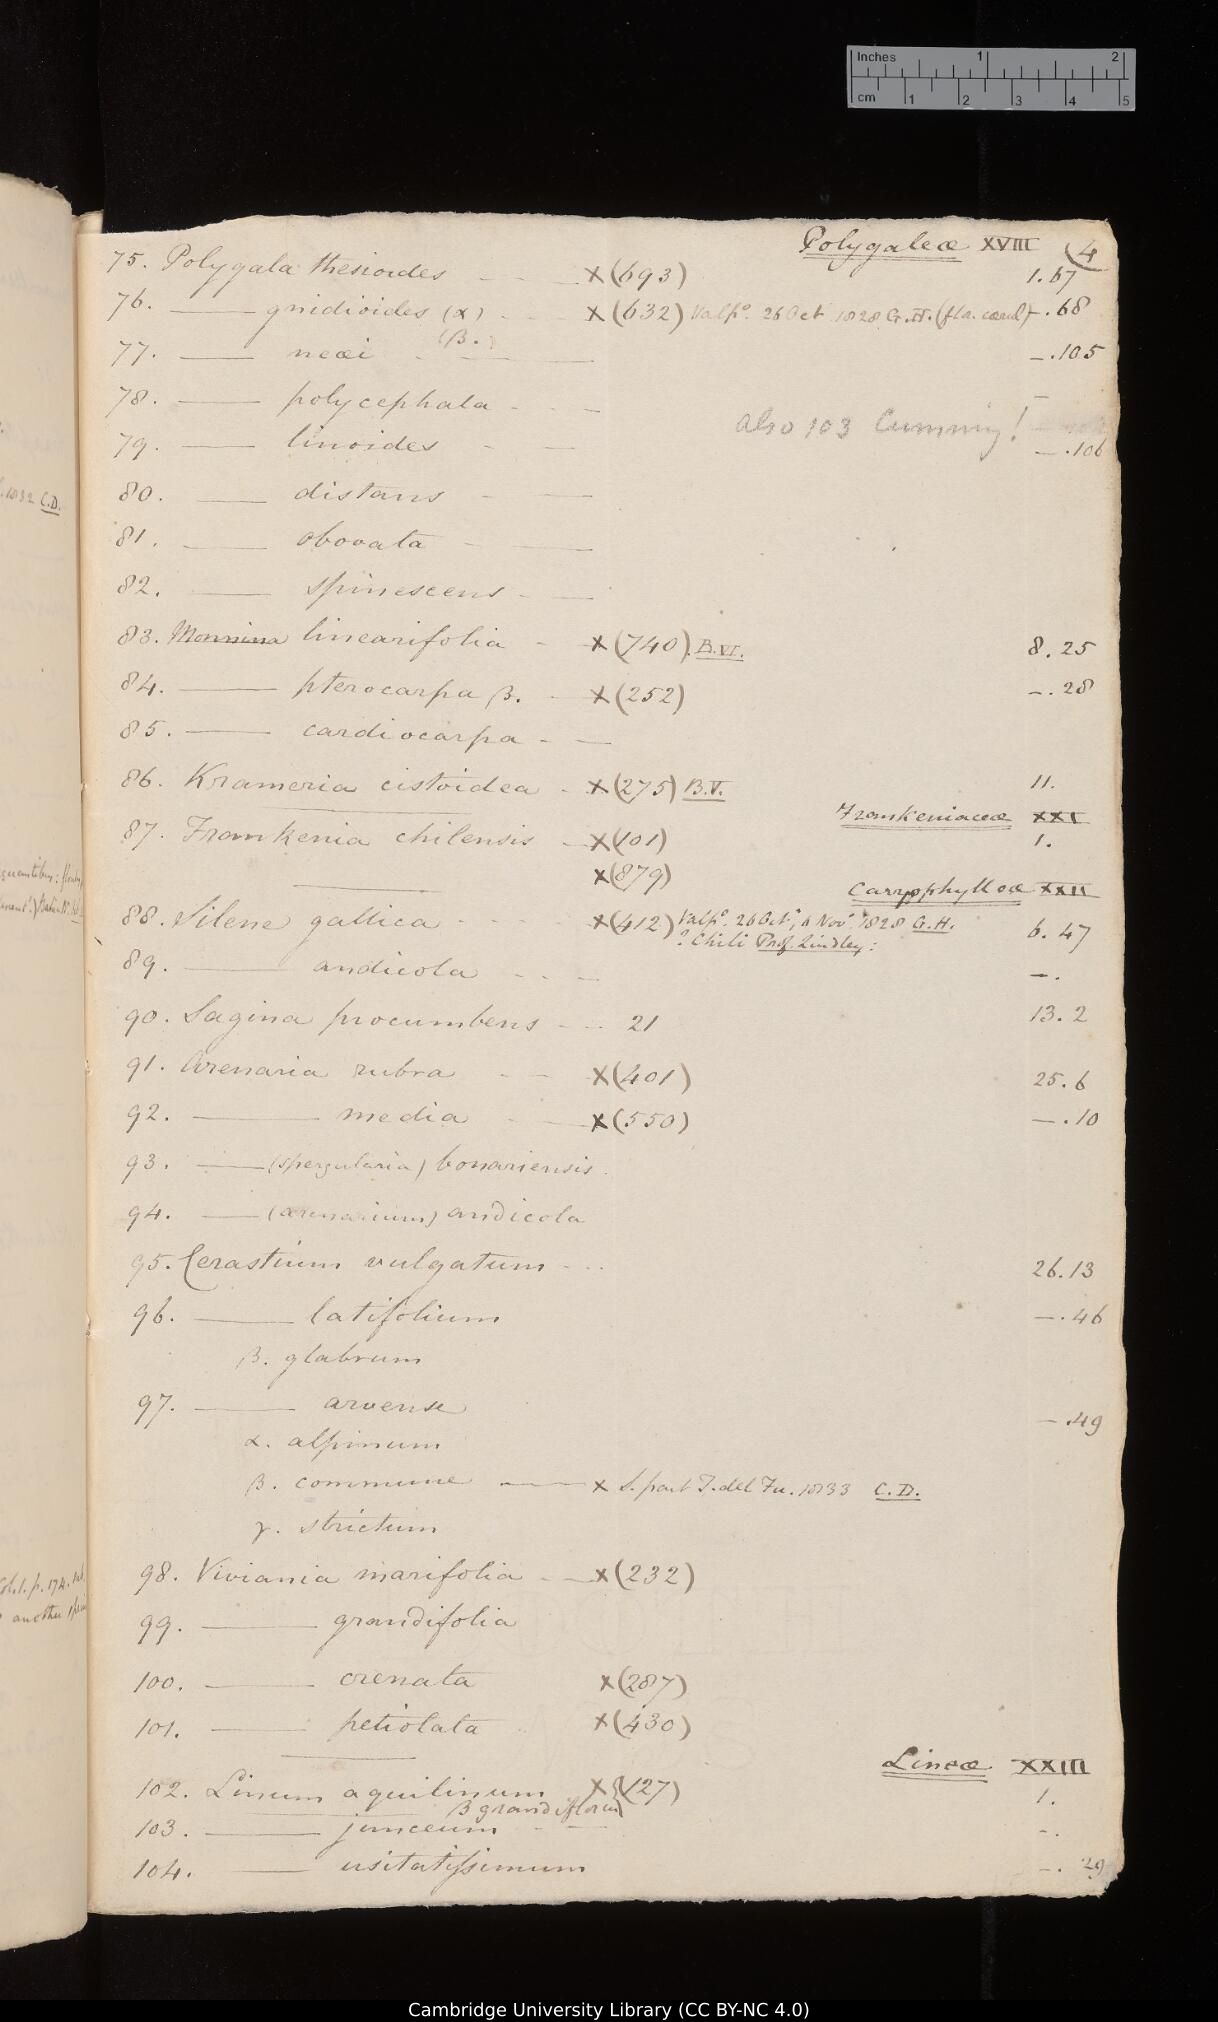 Inches 1 2
cm 1 2 3 4 5
Polygaleæ XVIII (4
75. Polygala thesioides — — X (693) 1.67
76. —— gnidioides (α) - - - X (632) Valpº. 26 Oct 1828 G.H. (fla. cærul) —.68
(β.)
77. —— neæi - —— —.105
78. —— polycephala - - — —
also 103 Cumming!
79. —— linoides - — —.106
80. —— distans - —
81. —— obovata - ——
82. —— spinescens - —
83. Monnina linearifolia - X (740). B.VI. 8.25
84. —— pterocarpa β. - X (252) —.28
85. —— cardiocarpa - —
86. Krameria cistoidea - X (275) B.V. 11.
Frankeniaceæ XXI
87. Frankenia chilensis - X (101) 1.
X (879)
Caryophylleæ XXII
88. Silene gallica - - - - X (412) Valpº. 26 Oct. & Novr 1828 G.H. 6.47
? Chili Prof. Lindley:
89. —— andicola - - — —.
90. Sagina procumbens - - - 21 13.2
91. Arenaria rubra — — X (401) 25.6
92. —— media - — X (550) —.10
93. —— (spergularia) bonariensis.
94. —— (arenarium) andicola
95. Cerastium vulgatum - - - 26.13
96. —— latifolium —.46
β. glabrum
97. —— arvense —.49
α. alpinum
β. commune —— x S. part T. del Fu. 1833 C.D.
γ. strictum
98. Viviania marifolia - — X (232)
99. —— grandifolia
100. —— crenata X (287)
101. —— petiolata X (430)
Lineæ XXIII
102. Linum aquilinum X (127) 1.
β grandiflorum
103. —— junceum - — -.
104. —— usitatissimum —.29
1832 C.D.
Cambridge University Library (CC BY-NC 4.0)